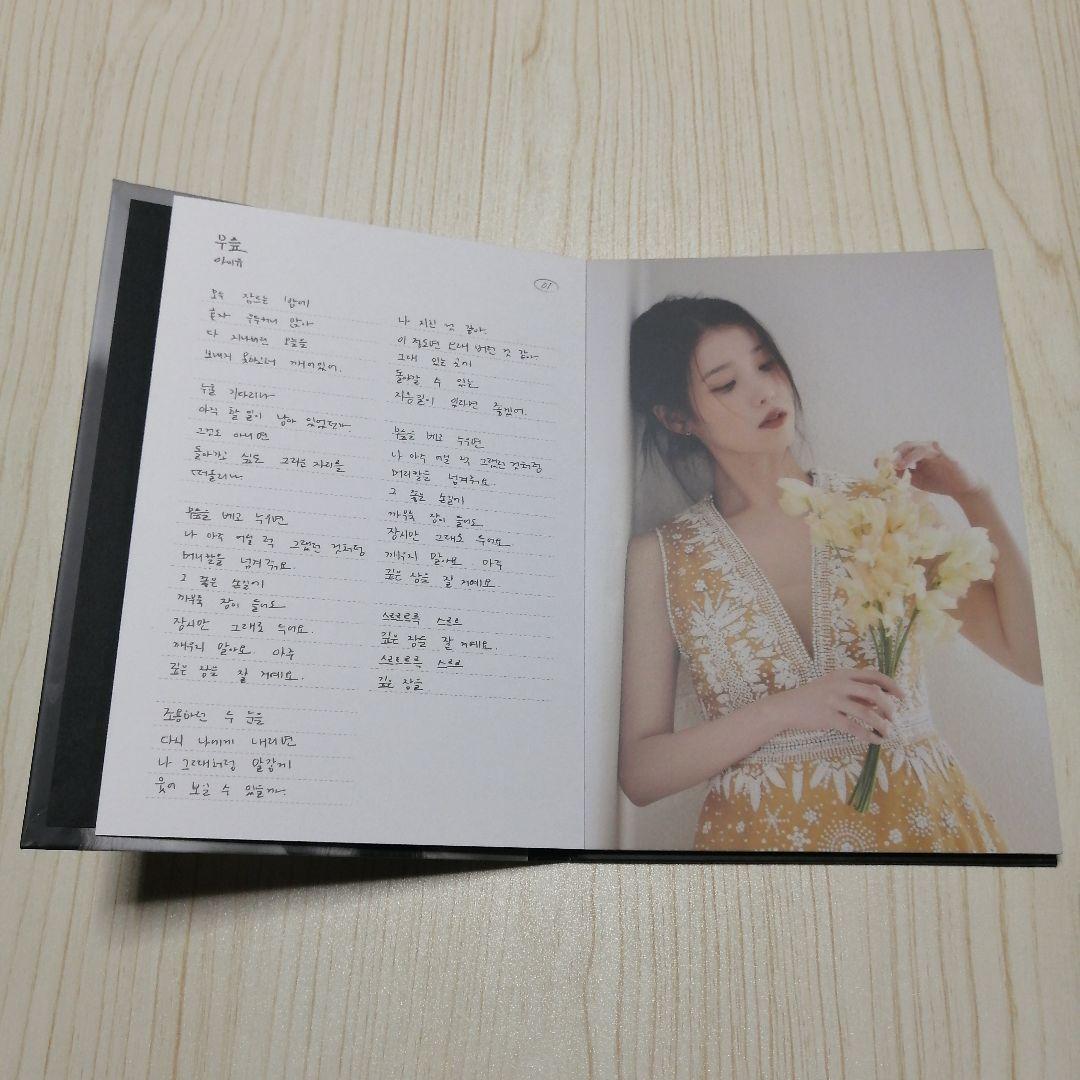 무릎
아이유
01
모두 잠드는 밤에
혼자 우두커니 앉아
다 지나버린 오늘을
보내지 못하고서 깨어있어.
누굴 기다리나
아직 할 일이 남아 있었던가
그것도 아니면
돌아가고 싶은 그리운 자리를
떠올리나
무릎을 베고 누우면
나 아주 어릴 적 그랬던 것처럼
머리칼을 넘겨줘요
그 좋은 손길에
까무룩 잠이 들어도
잠시만 그대로 두어요.
깨우지 말아요. 아주
깊은 잠을 잘 거예요.
조용하던 두 눈을
다시 나에게 내리면
나 그때처럼 말갛게
웃어 보일 수 있을까.
나 지친 것 같아
이 정도면 오래 버틴 것 같아
그대 있는 곳에
돌아갈 수 있는
지름길이 있다면 좋겠어.
무릎을 베고 누우면
나 아주 어릴 적 그랬던 것처럼
머리칼을 넘겨줘요.
그 좋은 손길에
까무룩 잠이 들어도
잠시만 그대로 두어요
깨우지 말아요 아주
깊은 잠을 잘 거예요
스르르르륵 스르
깊은 잠을 잘 거예요.
스르르르륵 스르
깊은 잠을